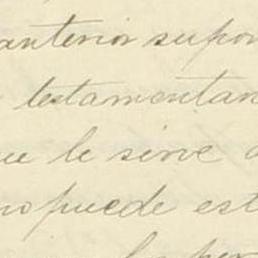 anterior supon
testamentar
ue le sirve
no puede est